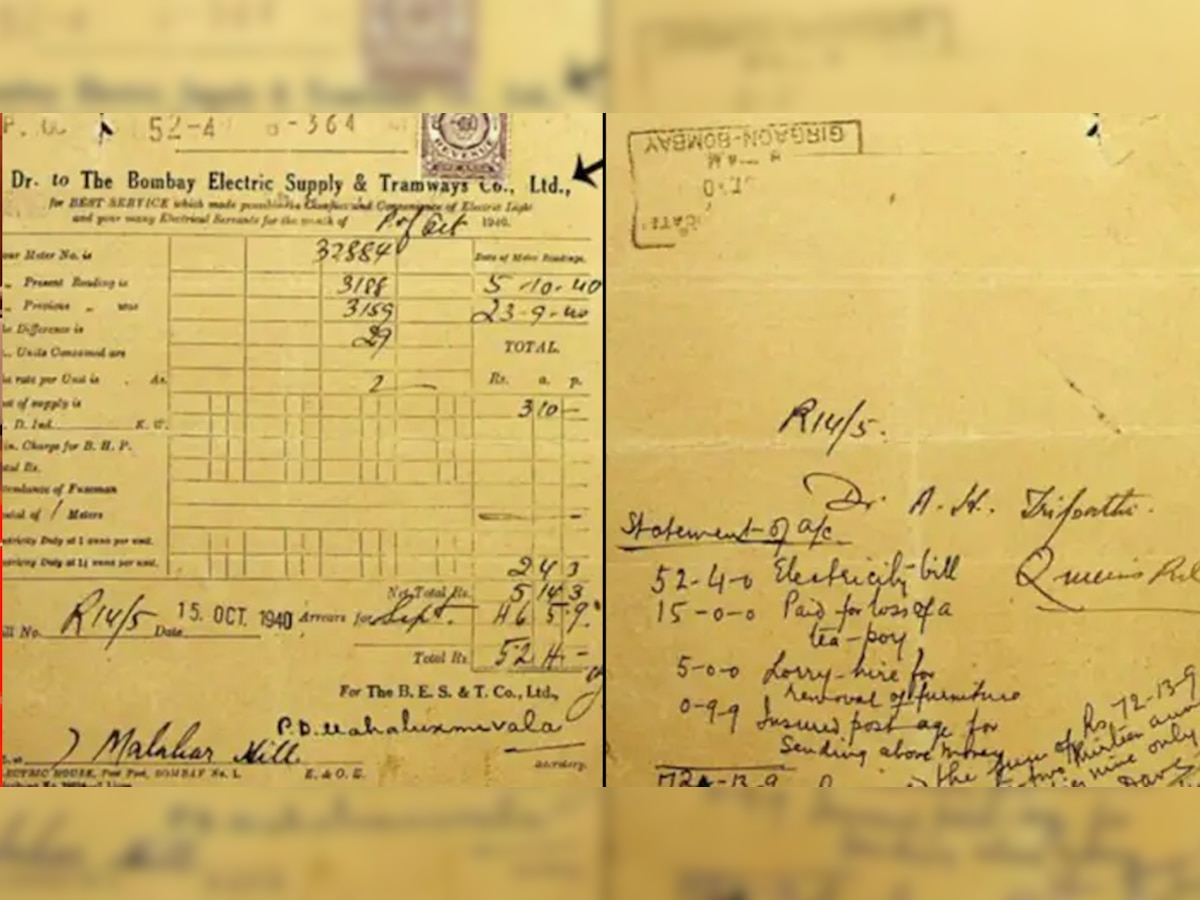 52-4 -364
REVENUE
Dr. to The Bombay Electric Supply & Tramways Co., Ltd.,
for BEST SERVICE which made possible the Comfort and Convenience of Electric Light
and your many Electrical Servants for the month of P. of Oct 1940.
our Meter No. is 32884 Date of Meter Readings.
„ Present Reading is 3188 5-10-40
„ Previous „ was 3159 23-9-40
he Difference is 29
„ Units Consumed are TOTAL.
he rate per Unit is . As. 2 — Rs. a. p.
of supply is 3 10 -
D. Ind. K. W.
in. Charge for B. H. P.
tal Rs.
tendance of Fuseman
ental of 1 Meters
ctricity Duty at 1 anna per unit.
ctricity Duty at 1¼ annas per unit. 2 4 3
Net Total Rs. 5 14 3
ill No. R14/5 Date 15. OCT. 1940 Arrears for Sept. 46 5 9
Total Rs. 52 4 -
For The B. E. S. & T. Co., Ltd.,
P.D. Mahaluxmivala
Malabar Hill
Secretary.
ECTRIC HOUSE, Post Fort, BOMBAY No. 1. E. & O. E.
GIRGAON-BOMBAY
A.M.
DATE
R14/5.
Dr. A. K. Tripathi.
Statement of a/c
Queens Rd
52-4-0 Electricity bill
15-0-0 Paid for loss of a
tea-poy
5-0-0 Lorry-hire for
removal of furniture
0-9-9 Insured postage for
Sending above money
72-13-9
the sum of Rs 72-13-9
two thirteen annas
nine only